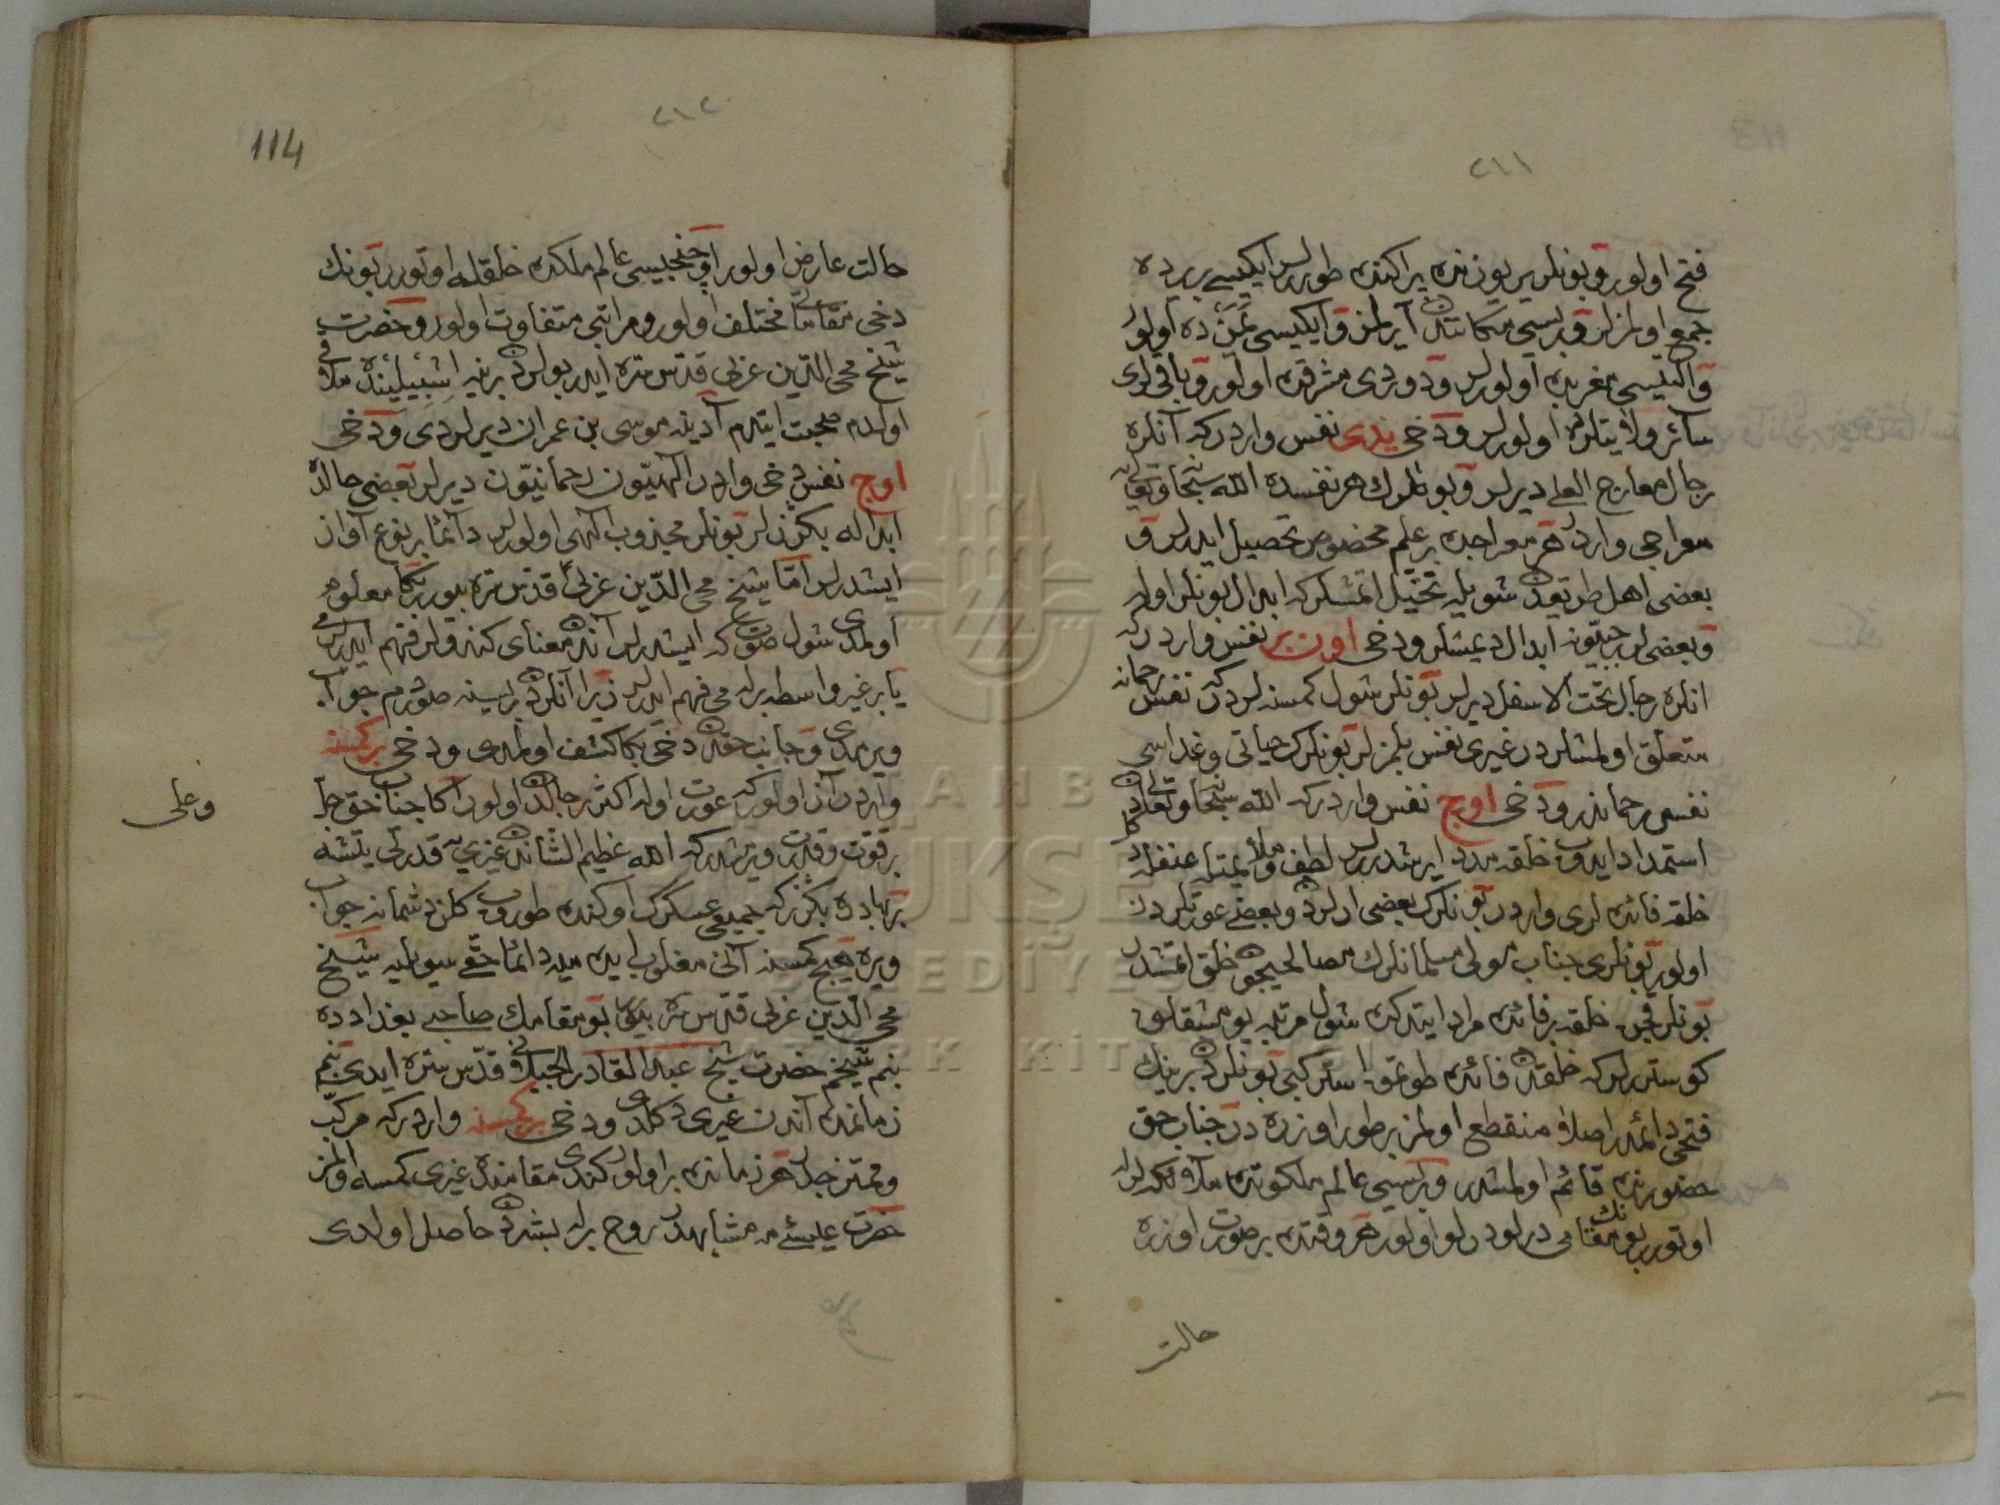 ٢١١
فتح اولور و بونلر بر یوزنده براکنده طورلر ایکیسی بر یرده
جمع اولمزلر و بریسی مکانندن آیرلمز و ایکیسی یمن ده اولور
و ایکیسی مغربده اولورلر و دوردی مشرقده اولور و باقیلری
سائر ولایتلرده اولورلر و دخی یدی نفس واردر که آنلره
رجال معارج العلی دیرلر و بونلرک هر نفسده الله سبحانه و تعالی یه
معراجی واردر هر معراجده بر علم مخصوص تحصیل ایدرلر و
بعضی اهل طریقدن شویله تخیّل اتمشلر که ابدال بونلر اوله
و بعضیلر رجبیّونه ابدال دیمشلر و دخی اون بر نفس واردر که
انلره رجال تحت الاسفل دیرلر بونلر شول کمسنه لردر که نفس رحمانه
متعلق اولمشلردر غیری نفس بلمزلر بونلرک حیاتی و غداسی
نفس رحماندر و دخی اوچ نفس واردر که الله سبحانه و تعالی دن
استمداد ایدوب خلقه مدد ایرشدررلر لطف و ملایمتله عنفله دکل
خلقه فائده لری واردر بونلرک بعضی ارلردن و بعضی عورتلردن
اولور بونلری جناب مولی مسلمانلرک مصالحیچون خلق اتمشدر
بونلر قچن خلقه بر فائده مراد ایتدکده شول مرتبه یومشقلق
کوسترلر که خلقدن فائده طوتمق استر کبی بونلردن برینک
فتحی دائمدر اصلا منقطع اولمز بر طور اوزره در جناب حق
حضورنده قائم اولمشدر و بریسی عالم ملکوتده ملائکه لرله
اوتورر بونک مقامی درلو درلو اولور هر وقتده بر صورت اوزره
حالت
٢١٢
114
حالت عارض اولور اوچنجیسی عالم ملکده خلقله اوتورر بونک
دخی مقاماتی مختلف اولور و مراتبی متفاوت اولور و حضرت
شیخ محی الدین عربی قدس سره ایدر بونلردن برینه اشبیلیه ده ملاقی
اولدم صحبت ایتدم آدینه موسی بن عمران دیرلردی و دخی
اوچ نفس دخی واردر الهیّون رحمانیّون دیرلر بعضی حالده
ابداله بکزرلر بونلر مجذوب الهی اولورلر دائما بر نوع آواز
ایشدرلر امّا شیخ محی الدّین عربی قدّس سرّه بیورر بکا معلوم
اولمدی شول صوت که ایشدرلر آندن معنای کندولر فهم ایدرلر می
یا بر غیر واسطه برله می فهم ایدرلر زیرا آنلردن بریسنه صوردم جواب
ویرمدی و جانب حقدن دخی بکا کشف اولمدی و دخی بر کمسنه
واردر آز اولور که عورت اوله اکثر رجالدن اولور آکا جناب حق جلّ و على
بر قوت و قدرت ویرمشدر که الله عظیم الشاندن غیری یه قدرتی یتشه
بر بهادره بکزر که جمیع عسکرک اوکنده طوروب کلن دشمانه جواب
ویره هیچ کمسنه آنی مغلوب ایده میه دائما حقی سویلیه شیخ
محی الدّین عربی قدّس سرّه بیورر بو مقامک صاحبی بغداد ده
بنم شیخم حضرت شیخ عبد القادر الجیلانی قدّس سرّه ایدی بنم
زمانمده آندن غیری کلمدی و دخی بر کمسنه واردر که مرکّب
و ممتزجدر هر زمانده بر اولور کندی مقامنده غیری کمسه اولمز
حضرت عیسی یه مشابهدر روح برله بشردن حاصل اولدی